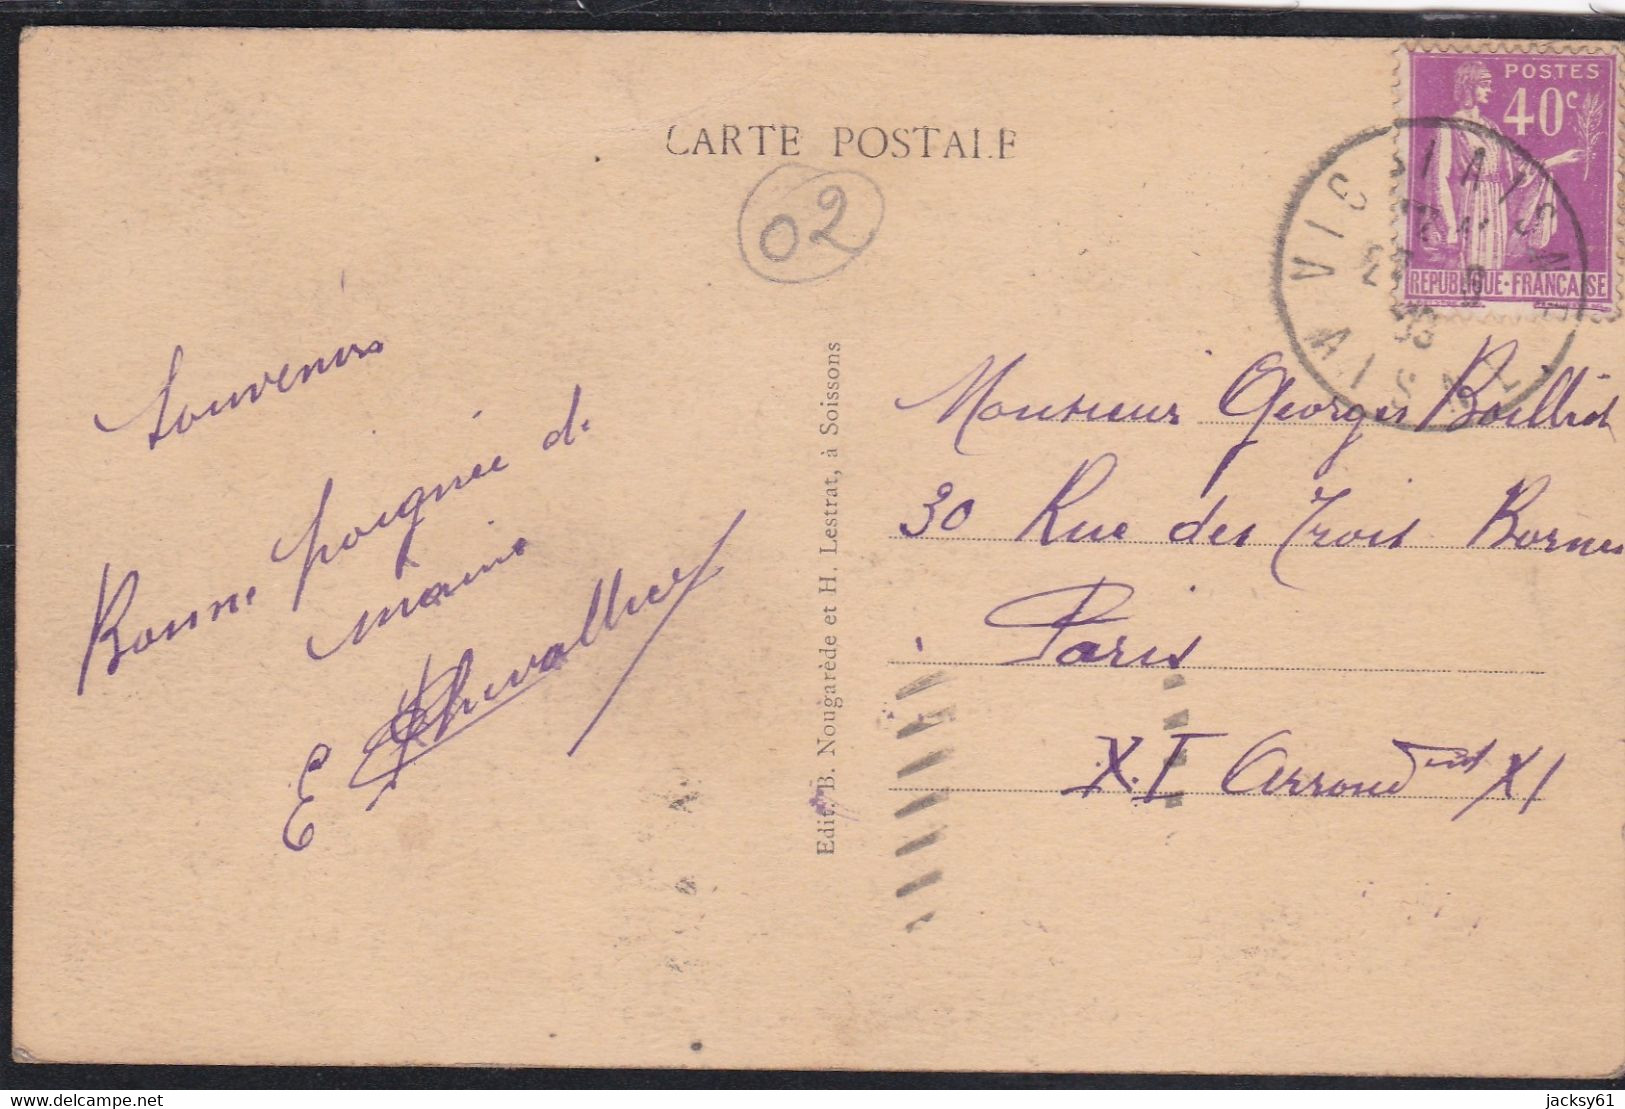 CARTE POSTALE
02
POSTES
40c
REPUBLIQUE-FRANÇAISE
VIC S/ AISNE
AISNE
Souvenirs
Bonne poignée de
mains
E Chevallier
Edit. B. Nougarède et H. Lestrat, à Soissons
Monsieur Georges
30 Rue des Trois Bornes
Paris
XI Arrondmt XI
jacksy61
www.delcampe.net